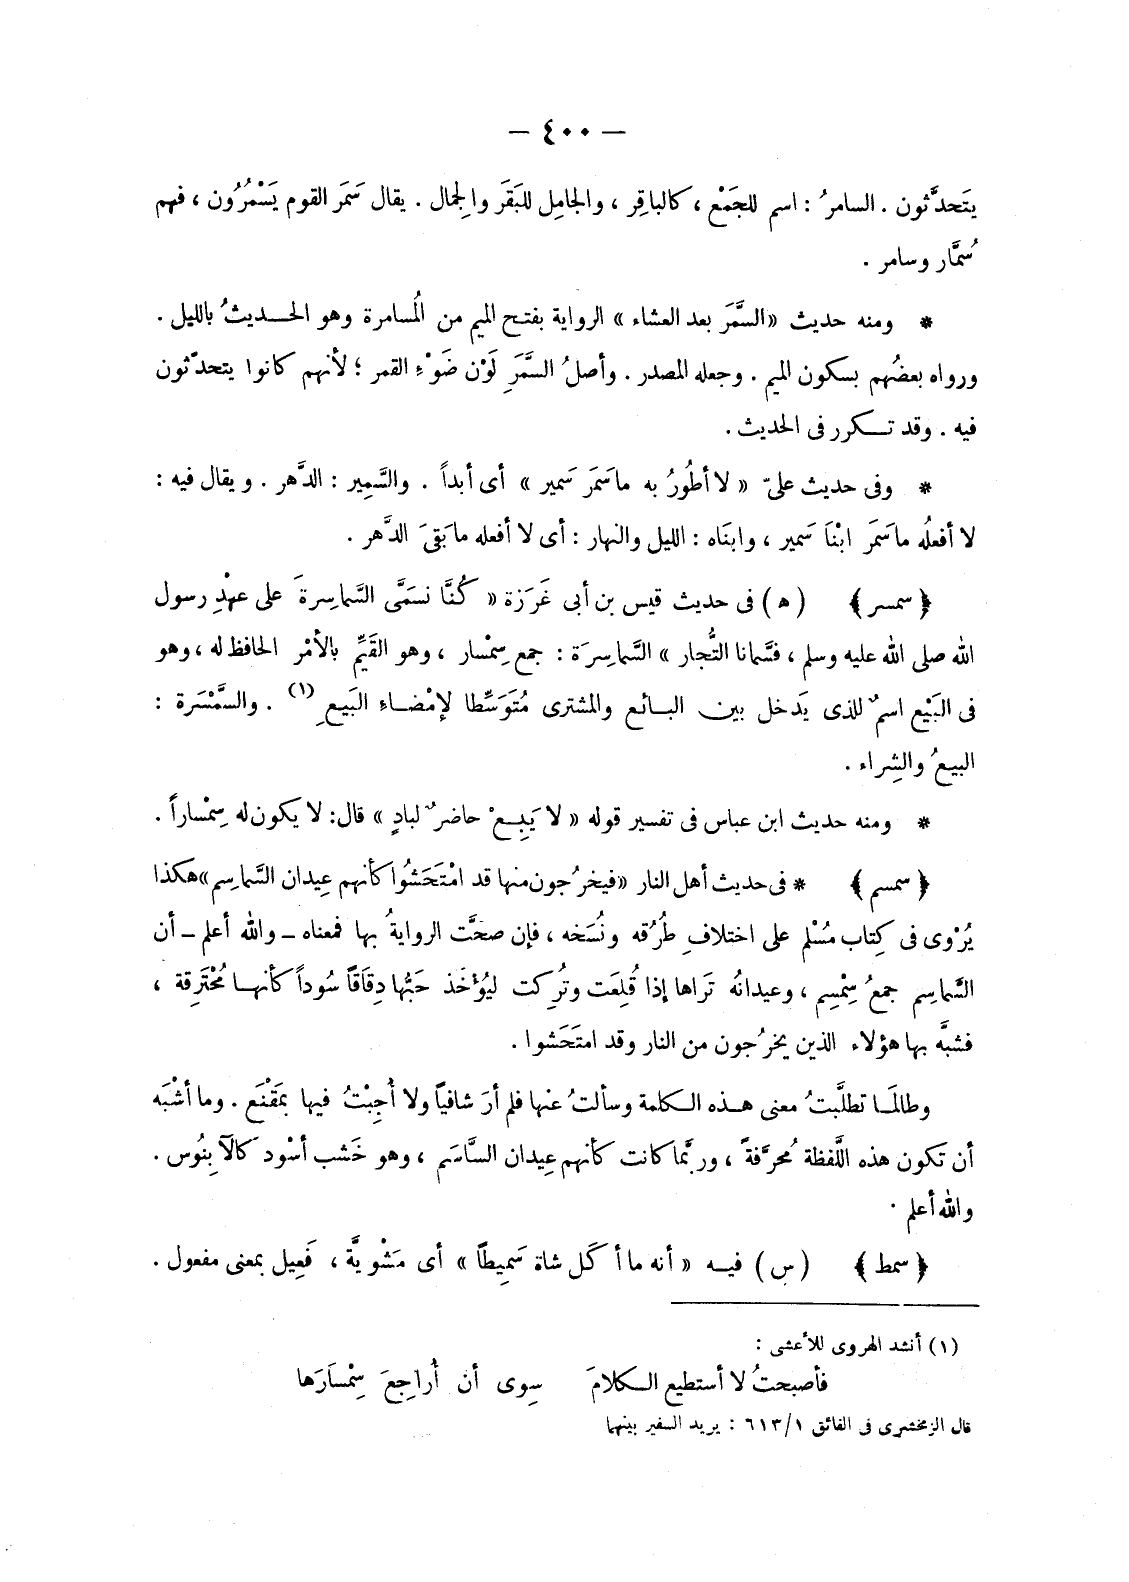 — ٤٠٠ —
يتَحدَّثون . السامرُ : اسم للجَمْع ، كالباقِر ، والجامِل للبَقَر والجِمال . يقال سَمَر القوم يَسْمُرُون ، فهم
سُمَّار وسامر .
* ومنه حديث « السَّمَرَ بعد العشاء » الرواية بفتح الميم من المُسامرة وهو الحديثُ بالليل .
ورواه بعضُهم بسكون الميم . وجعله المصدر . وأصلُ السَّمَرِ لَوْن ضَوْءِ القمر ؛ لأنهم كانوا يتحدّثون
فيه . وقد تكرر فى الحديث .
* وفى حديث علىّ « لا أطُورُ به ماسَمَر سَمير » أى أبداً . والسَّمِير : الدَّهر . ويقال فيه :
لا أفعلُه ماسَمَر ابْنَا سَمير ، وابنَاه : الليل والنهار : أى لا أفعله مابَقىَ الدَّهر .
﴿ سمسر ﴾ ( ه ) فى حديث قيس بن أبى غَرَزة « كُنَّا نسَمَّى السَّماسِرةَ على عهْدِ رسول
الله صلى الله عليه وسلم ، فسَّمانا التُّجار » السَّماسِرَة : جمع سِمْسار ، وهو القَيِّم بالأمْر الحافظ له ، وهو
فى البَيْع اسمٌ للذى يَدخل بين البائع والمشترى مُتَوَسِّطا لإمْضاءِ البَيعِ (١) . والسَّمْسَرة :
البيعُ والشِراء .
* ومنه حديث ابن عباس فى تفسير قوله « لا يَبِعْ حاضرٌ لبادٍ » قال: لا يكون له سِمْساراً .
﴿ سمسم ﴾ * فى حديث أهل النار « فيخرُجون منها قد امْتَحَشُوا كأنهم عِيدان السَّماسِم » هكذا
يُرْوى فى كِتاب مُسْلم على اختلافِ طُرُقه ونُسَخه ، فإن صحَّت الروايةُ بها فمعناه ــ والله أعلم ــ أن
السَّماسِم جمعُ سِمْسِم ، وعيدانُه تَراها إذا قُلِعَت وتُرِكت ليُؤْخَذ حَبُّها دِقَاقاً سُوداً كأنها مُحْتَرِقة ،
فشبَّه بها هؤلاء الذين يخرُجون من النار وقد امتَحَشوا .
وطالمَا تطلَّبتُ معنى هذه الكلمة وسألتُ عنها فلم أرَ شافياً ولا أُجِبْتُ فيها بمَقْنَع . وما أشْبَه
أن تكون هذه اللَّفظة مُحرَّفةً ، وربَّما كانت كأنهم عِيدان السَّاسَم ، وهو خَشب أسْود كالآبِنُوس .
والله أعلم .
﴿ سمط ﴾ ( س ) فيه « أنه ما أكَل شاة سَمِيطاً » أى مَشْوِيَّة ، فَعِيل بمعنى مفعول .
(١) أنشد الهروى للأعشى :
فأصبحتُ لا أستطيع الكلامَ سِوى أن أُراجِعَ سِمْسَارَها
قال الزمخشرى فى الفائق ٦١٣/١ : يريد السفير بينهما